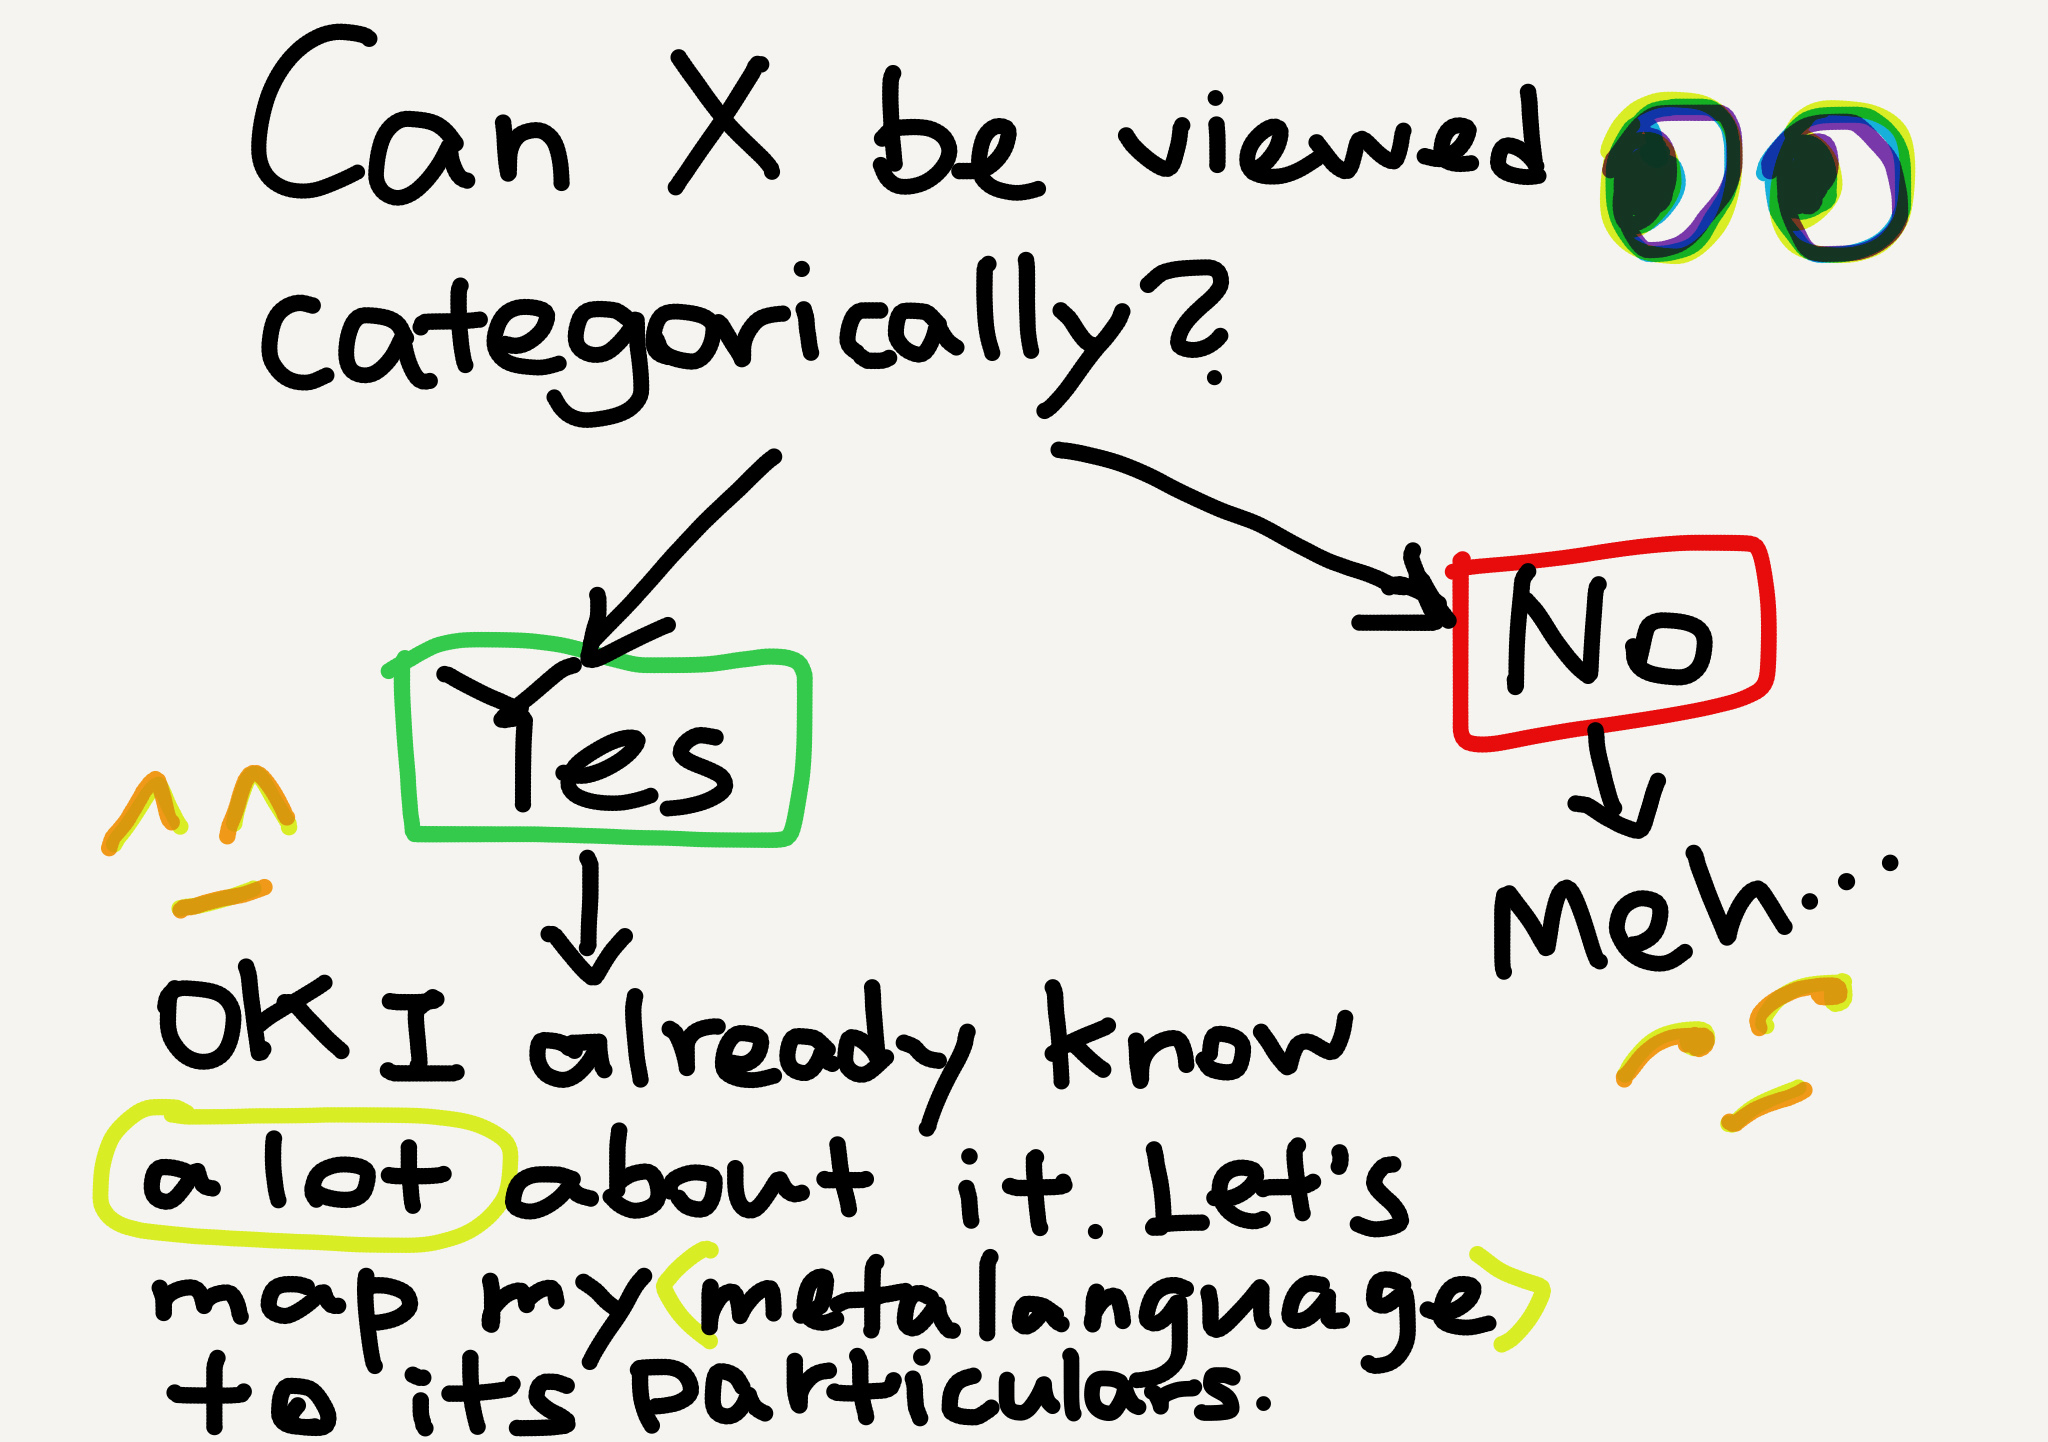 Can X be viewed
categorically?
Yes
No
Meh...
OK I already know
a lot about it. Let's
map my <metalanguage>
to its particulars.